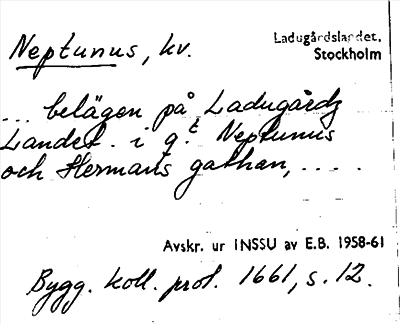 Neptunus, kv.
Ladugårdslandet,
Stockholm
... belägen på Ladugårdz
Landet. i q.t Neptunus
och Hermans gathan, .....
Avskr. ur INSSU av E.B. 1958-61
Bygg. koll. prot. 1661, s. 12.